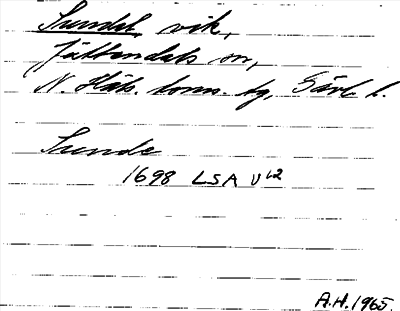 Sundet, vik,
Jättendals sn,
N. Häls. toms. tg, Gävle l.
Sunde
1698 LSA U 62
A.H. 1965.